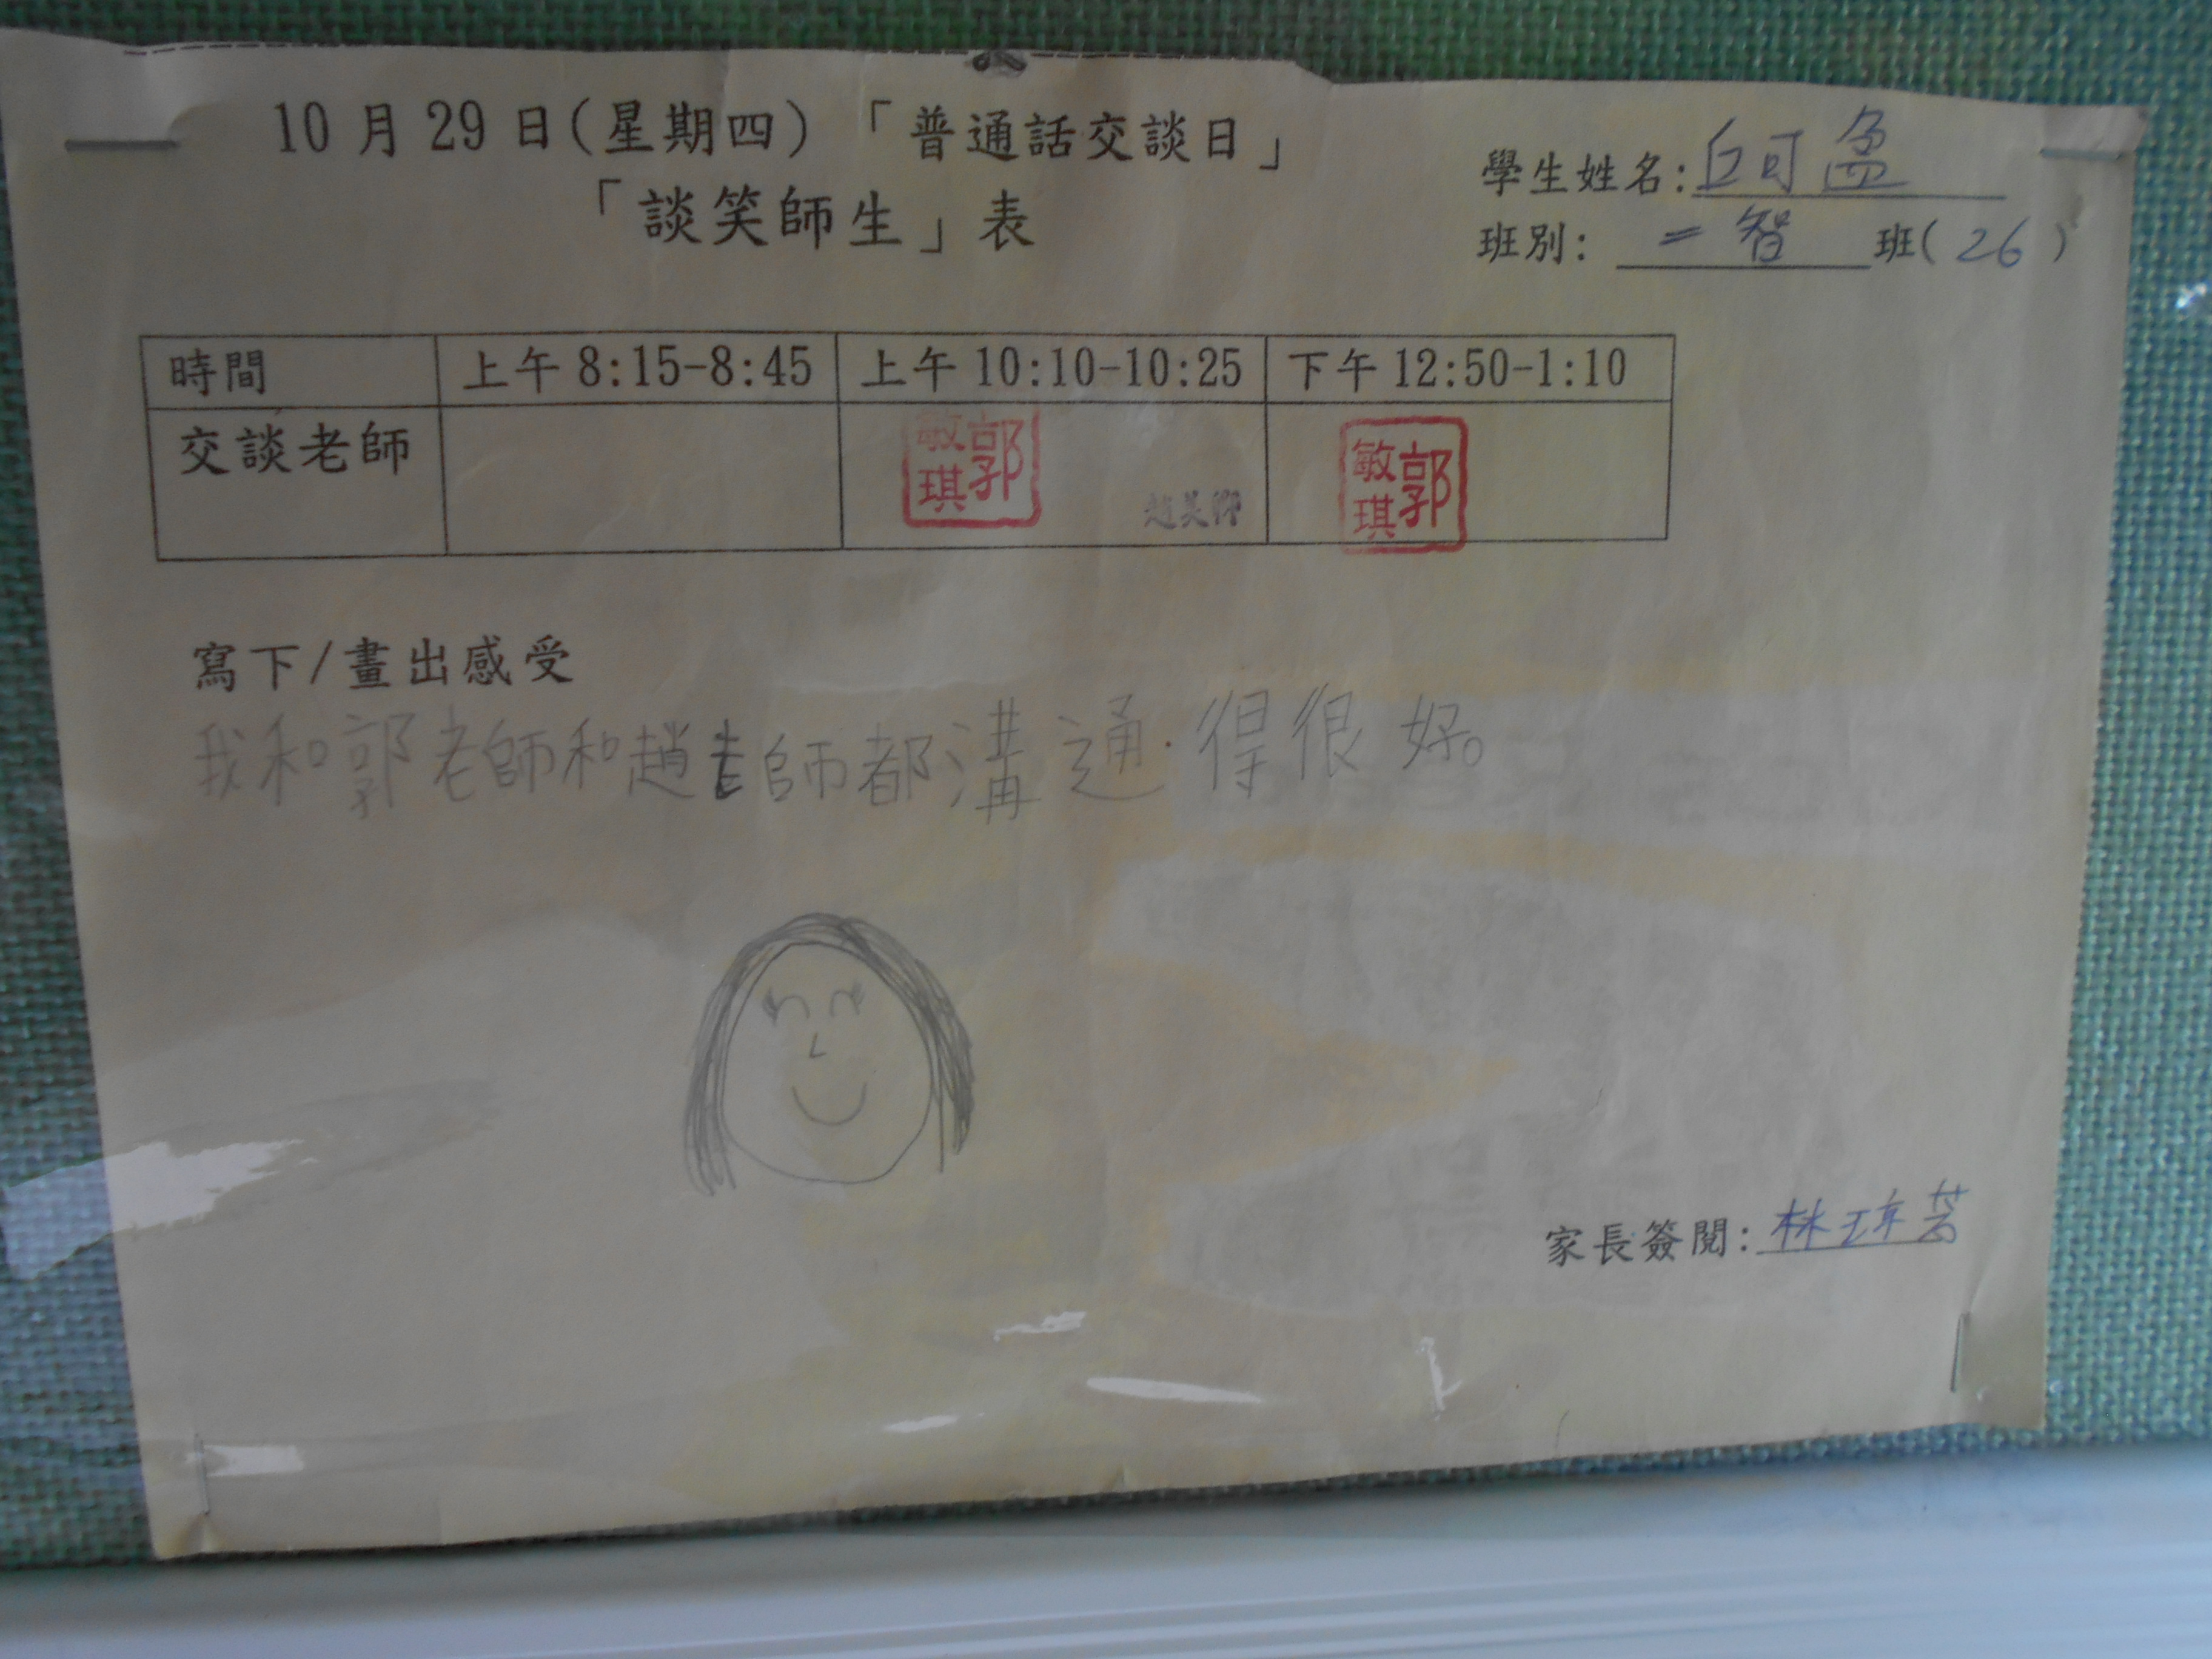 10月29日(星期四)「普通話交談日」
「談笑師生」表
學生姓名:丘可盈
班別: 二智 班(26)
時間 上午8:15-8:45 上午10:10-10:25 下午12:50-1:10
交談老師 郭敏琪 趙美 郭敏琪
寫下/畫出感受
我和郭老師和趙老師都溝通得很好。
家長簽閱: 林 芸